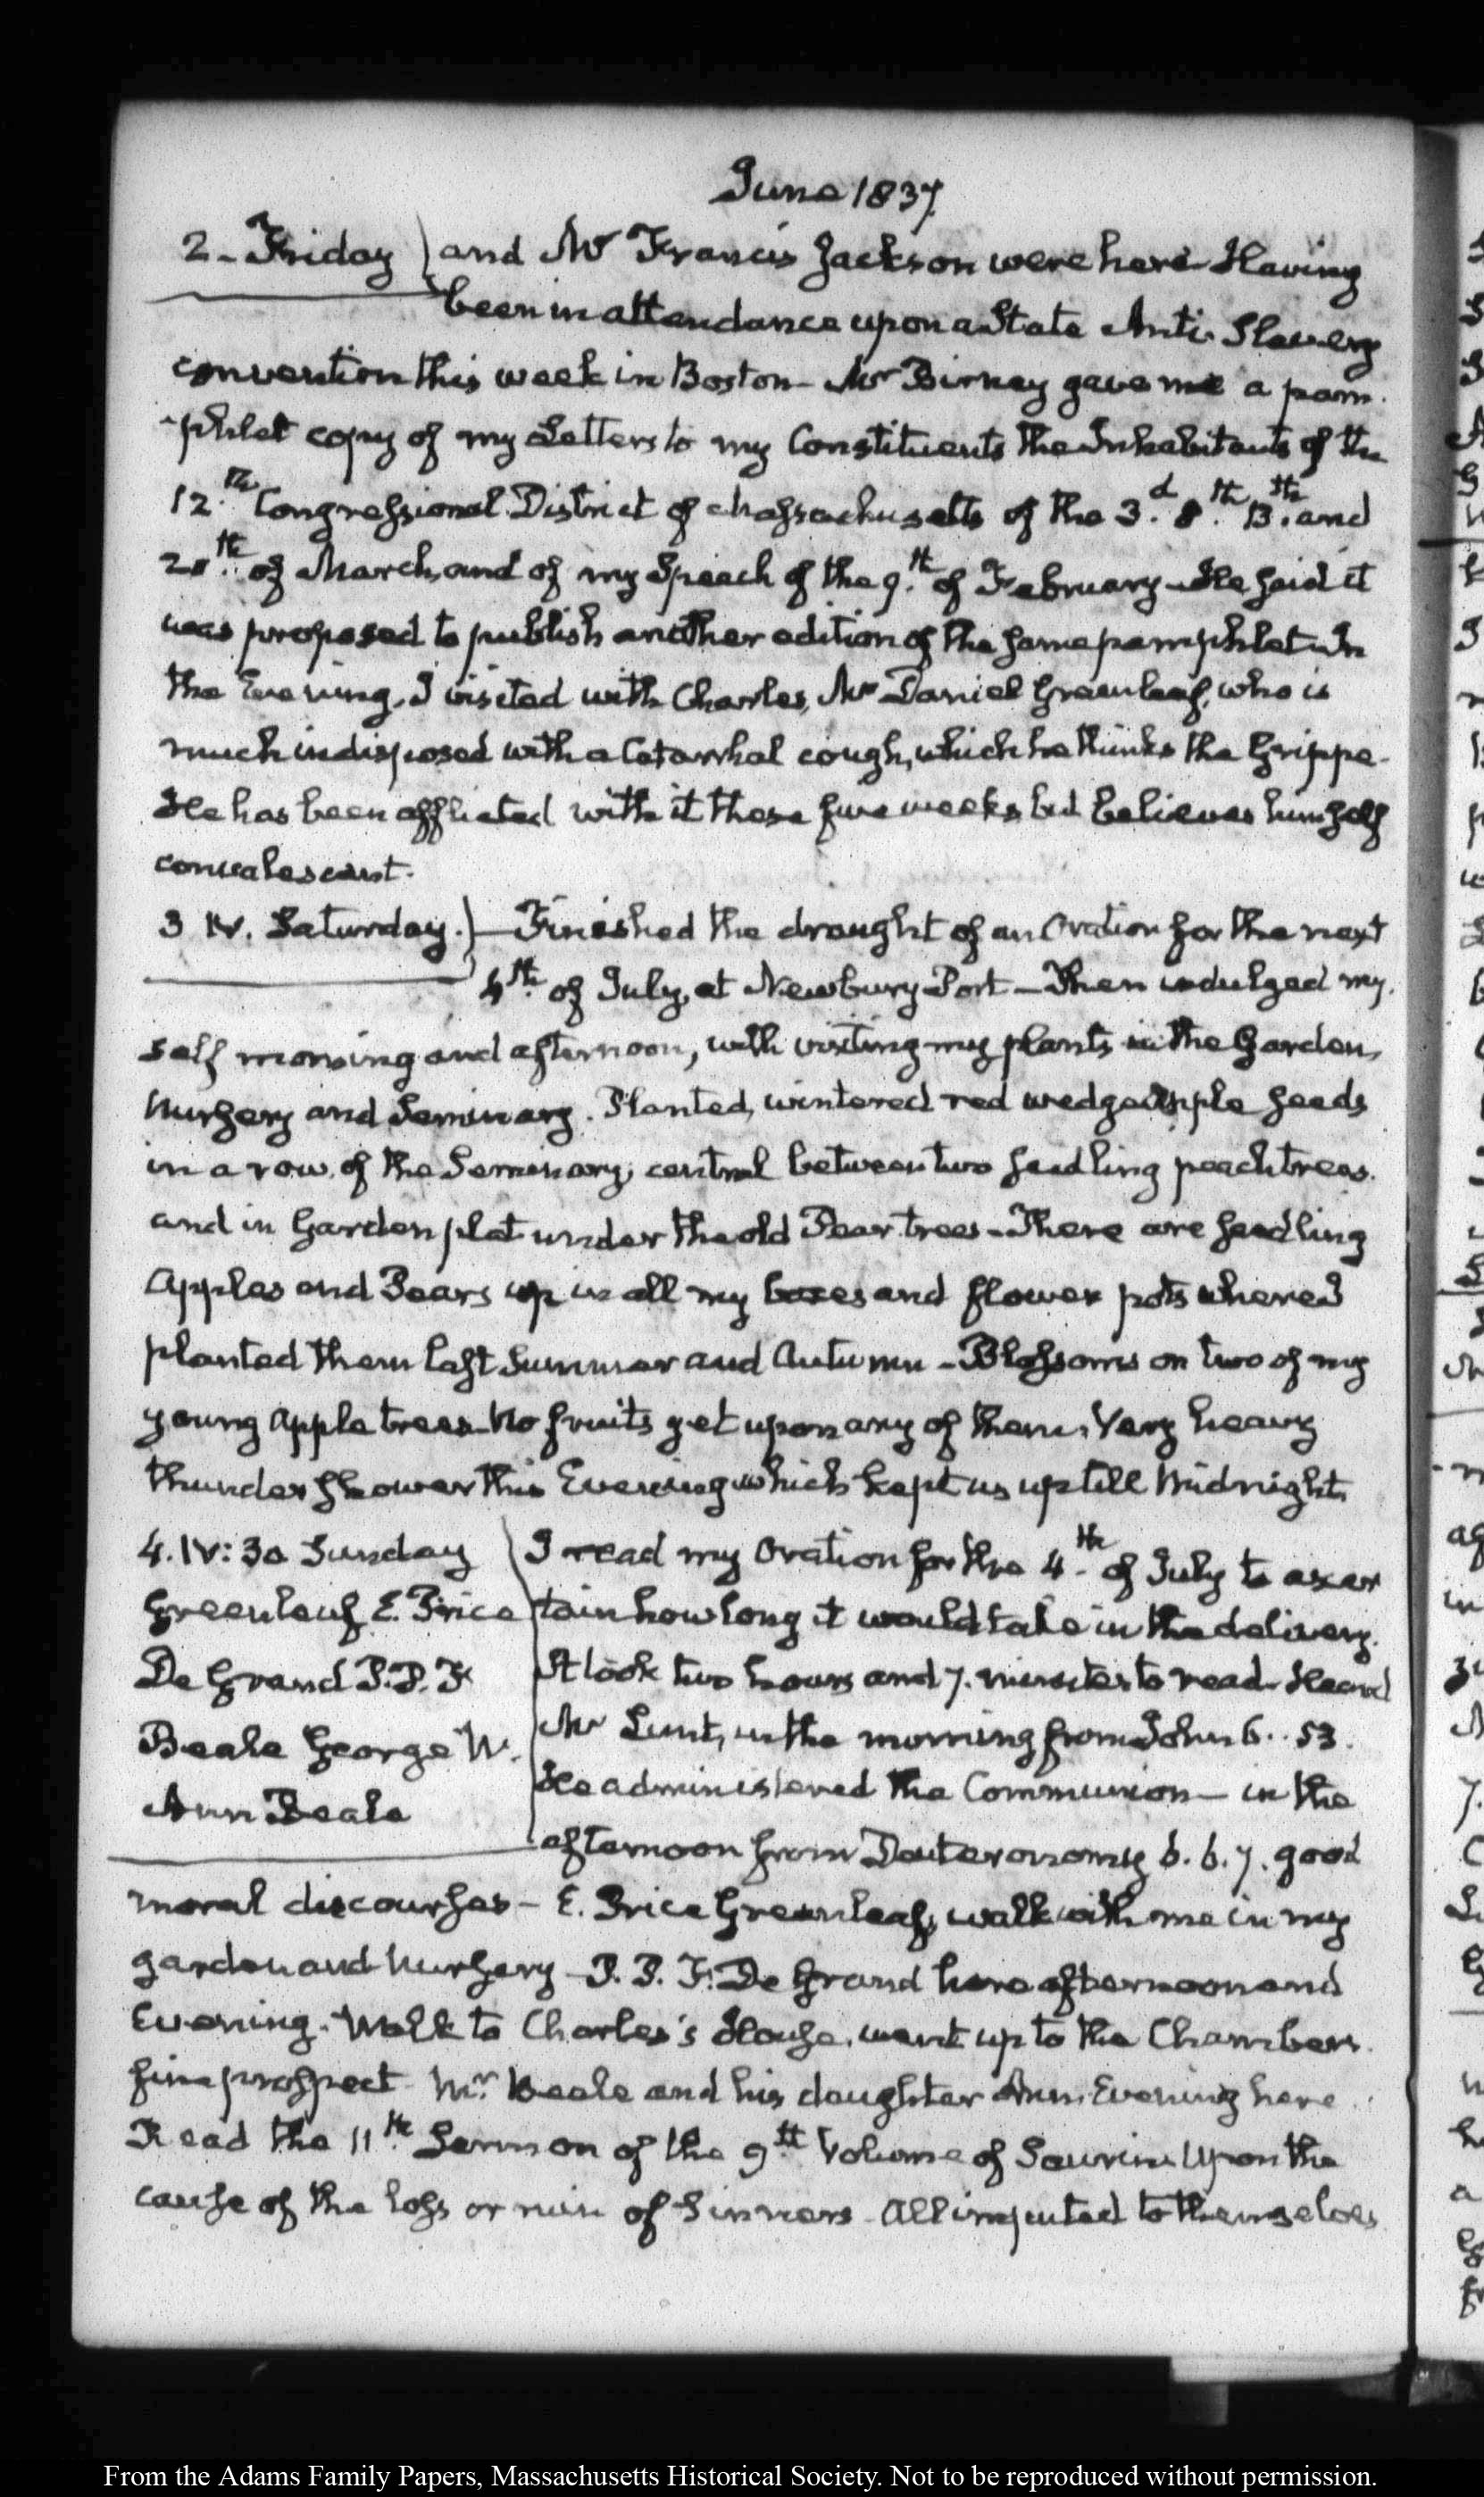 June 1837.
2 - Friday and Mr Francis Jackson were here - Having
been in attendance upon a State Anti-Slavery
convention this week in Boston - Mr Birney gave me a pam-
-phlet copy of my Letters to my Constituents the Inhabitants of the
12th Congressional District of Massachusetts of the 3d 8th 13th and
20th of March, and of my Speech of the 9th of February - He said it
was proposed to publish another edition of the same pamphlet - In
the Evening, I visited with Charles, Mr Daniel Greenleaf, who is
much indisposed with a Catarrhal cough, which he thinks the Grippe -
He has been afflicted with it these five weeks but believes himself
convalescent.
3 IV. Saturday. - Finished the draught of an Oration for the next
4th of July, at Newbury-Port - Then indulged my-
self morning and afternoon, with visiting my plants in the Garden,
Nursery and Seminary. Planted, wintered red apple seeds
in a row of the Seminary, central between two seedling peach trees.
and in Garden plat under the old Pear trees - There are seedling
Apples and Pears up in all my boxes and flower pots where I
planted them last Summer and Autumn - Blossoms on two of my
young apple trees - No fruits yet upon any of them. Very heavy
thunder shower this Evening which kept us up till Midnight.
4. IV: 30 Sunday I read my Oration for the 4th of July to ascer
Greenleaf E. Price tain how long it would take in the delivery.
De Grand P. P. F. It took two hours and 7. minutes to read - Heard
Beale George W. Mr Lunt, in the morning from John 6. 53.
Ann Beale He administered the Communion - in the
afternoon from Deuteronomy 6. 6. 7. good
moral discourses - E. Price Greenleaf, walk with me in my
garden and Nursery - P. P. F. De Grand here afternoon and
Evening. Walk to Charles's House, went up to the Chambers.
fine prospect - Mr. Beale and his daughter Ann Evening here.
Read the 11th Sermon of the 9th Volume of Saurin Upon the
cause of the loss or ruin of Sinners - All imputed to themselves
From the Adams Family Papers, Massachusetts Historical Society. Not to be reproduced without permission.